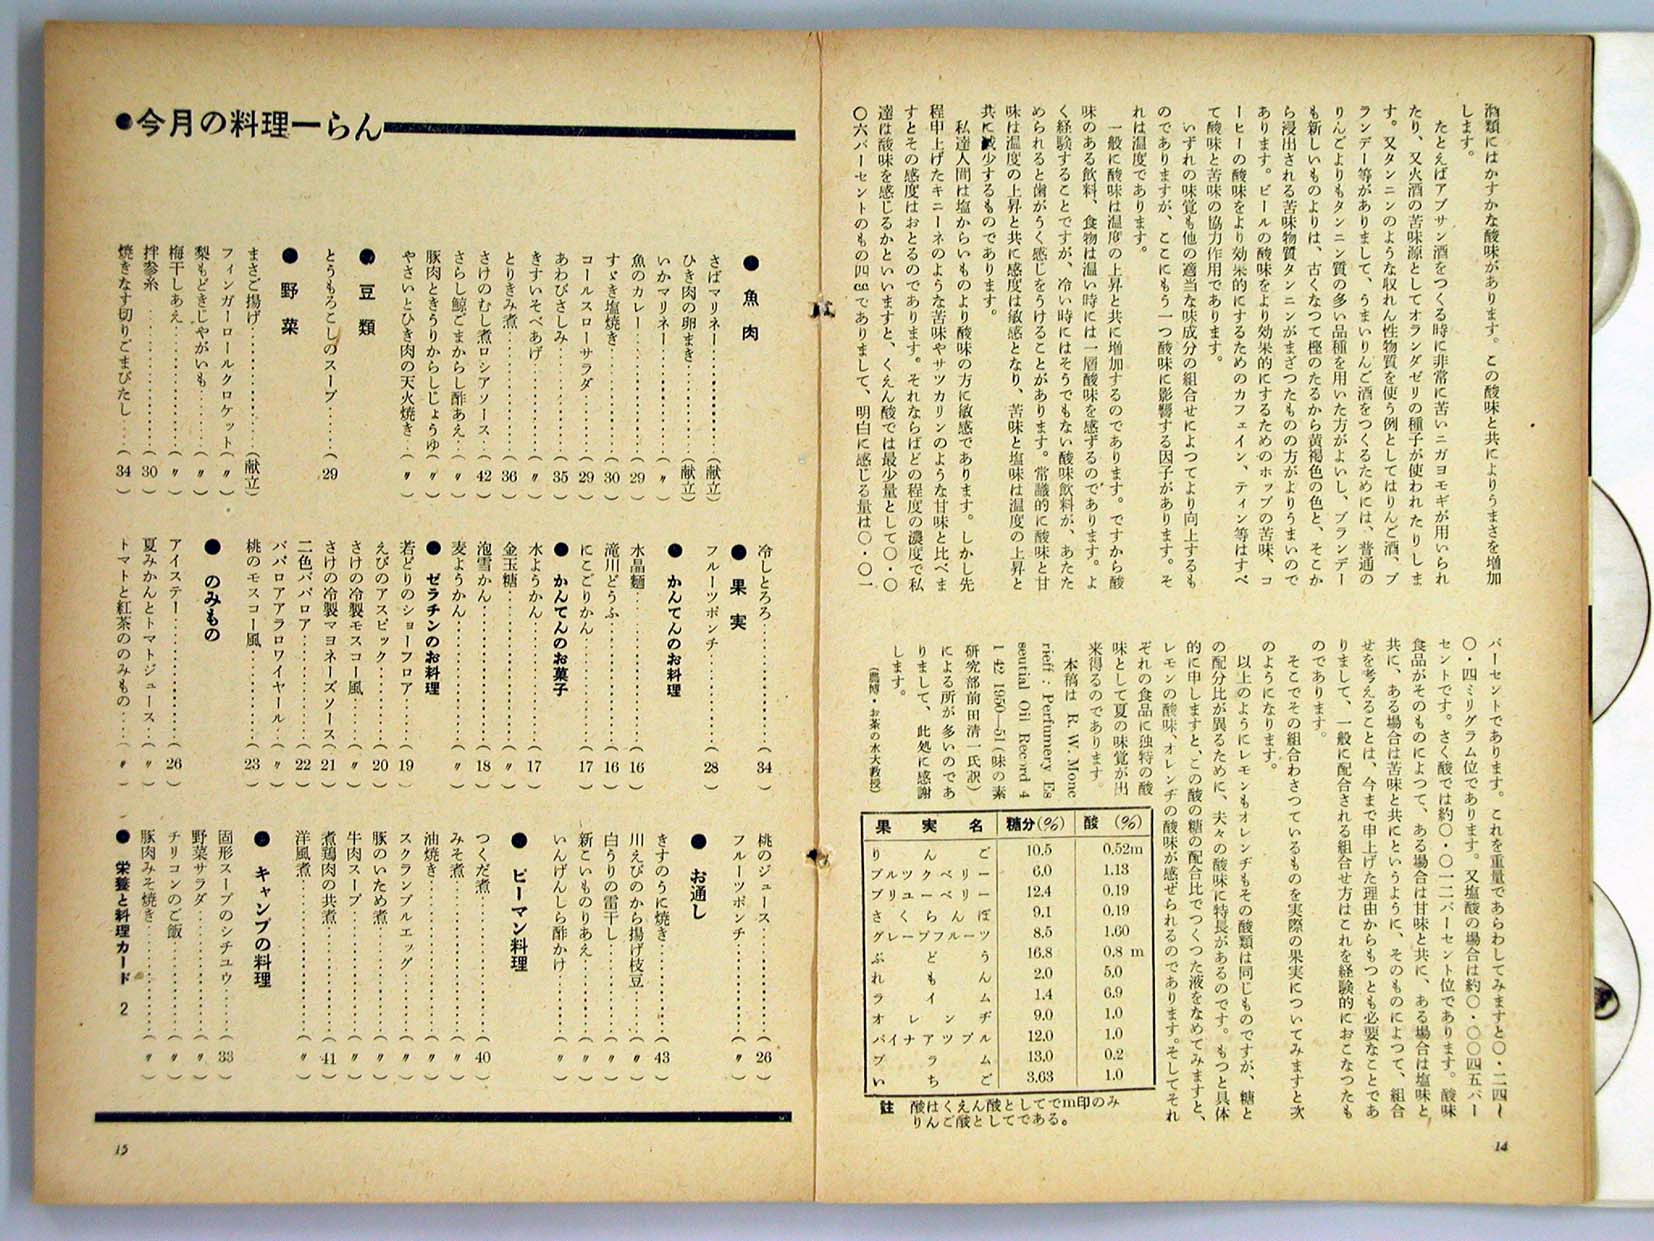 酒類にはかすかな酸味があります。この酸味と共によりうまさを増加
します。
たとえばアブサン酒をつくる時に非常に苦いニガヨモギが用いられ
たり、又火酒の苦味源としてオランダゼリの種子が使われたりしま
す。又タンニンのような収れん性物質を使う例としてはりんご酒、ブ
ランデー等がありまして、うまいりんご酒をつくるためには、普通の
りんごよりもタンニン質の多い品種を用いた方がよいし、ブランデー
も新しいものよりは、古くなつて樫のたるから黄褐色の色と、そこか
ら浸出される苦味物質タンニンがまざつたものの方がよりうまいので
あります。ビールの酸味をより効果的にするためのホップの苦味、コ
ーヒーの酸味をより効果的にするためのカフェイン、ティン等はすべ
て酸味と苦味の協力作用であります。
いずれの味覚も他の適当な味成分の組合せによつてより向上するも
のでありますが、ここにもう一つ酸味に影響する因子があります。そ
れは温度であります。
一般に酸味は温度の上昇と共に増加するのであります。ですから酸
味のある飲料、食物は温い時には一層酸味を感ずるのであります。よ
く経験することですが、冷い時にはそうでもない酸味飲料が、あたた
められると歯がうく感じをうけることがあります。常識的に酸味と甘
味は温度の上昇と共に感度は敏感となり、苦味と塩味は温度の上昇と
共に減少するものであります。
私達人間は塩からいものより酸味の方に敏感であります。しかし先
程申上げたキニーネのような苦味やサツカリンのような甘味と比べま
すとその感度はおとるのであります。それならばどの程度の濃度で私
達は酸味を感じるかといいますと、くえん酸では最少量として〇・〇
〇六パーセントのもの四ccでありまして、明白に感じる量は〇・〇一
パーセントであります。これを重量であらわしてみますと〇・二四〜
〇・四ミリグラム位であります。又塩酸の場合は約〇・〇〇四五パー
セントです。さく酸では約〇・〇一二パーセント位であります。酸味
食品がそのものによつて、ある場合は甘味と共に、ある場合は塩味と
共に、ある場合は苦味と共にというように、そのものによつて、組合
せを考えることは、今まで申上げた理由からもつとも必要なことであ
りまして、一般に配合される組合せ方はこれを経験的におこなつたも
のであります。
そこでその組合わさつているものを実際の果実についてみますと次
のようになります。
以上のようにレモンもオレンヂもその酸類は同じものですが、糖と
の配分比が異るために、夫々の酸味に特長があるのです。もつと具体
的に申しますと、この酸の糖の配合比でつくつた液をなめてみますと、
レモンの酸味、オレンヂの酸味が感ぜられるのであります。そしてそれ
ぞれの食品に独特の酸
味として夏の味覚が出
来得るのであります。
本稿は R. W. Monc
rieff : Perfumery Es
seutial Oil Record 4
1 42 1950—51(味の素
研究部前田清一氏訳)
による所が多いのであ
りまして、此処に感謝
します。
(農博・お茶の水大教授)
果実名 糖分(%) 酸(%)
りんご 10.5 0.52m
ブルツクベリー 6.0 1.13
ブリユーベリー 12.4 0.19
さくらんぼ 9.1 0.19
グレープフルーツ 8.5 1.60
ぶどう 16.8 0.8 m
れもん 2.0 5.0
ライム 1.4 6.9
オレンヂ 9.0 1.0
パイナアツプル 12.0 1.0
プラム 13.0 0.2
いちご 3.63 1.0
註 酸はくえん酸としてでm印のみ
りんご酸としてである。
14
●今月の料理一らん
●魚肉
さばマリネー…………(献立)
ひき肉の卵まき…………(献立)
いかマリネー…………(〃)
魚のカレー…………(29)
すゞき塩焼き…………(30)
コールスローサラダ…………(29)
あわびさしみ…………(35)
きすいそべあげ…………(〃)
とりきみ煮…………(36)
さけのむし煮ロシアソース…(42)
さらし鯨ごまからし酢あえ…(〃)
豚肉ときうりからしじょうゆ(〃)
やさいとひき肉の天火焼き…(〃)
●豆類
とうもろこしのスープ………(29)
●野菜
まさご揚げ…………(献立)
フィンガーロールクロケット(〃)
梨もどきじやがいも………(〃)
梅干しあえ…………(〃)
拌参糸…………(30)
焼きなす切りごまびたし…(34)
冷しとろろ…………(34)
●果実
フルーツポンチ…………(28)
●かんてんのお料理
水晶麺…………(16)
滝川どうふ…………(16)
にこごりかん…………(17)
●かんてんのお菓子
水ようかん…………(17)
金玉糖…………(〃)
泡雪かん…………(18)
麦ようかん…………(〃)
●ゼラチンのお料理
若どりのショーフロア……(19)
えびのアスピック…………(20)
さけの冷製モスコー風……(〃)
さけの冷製マヨネーズソース(21)
二色ババロア…………(22)
ババロアアラロワイヤール…(〃)
桃のモスコー風…………(23)
●のみもの
アイステー…………(26)
夏みかんとトマトジュース…(〃)
トマトと紅茶ののみもの…(〃)
桃のジュース…………(26)
フルーツポンチ…………(〃)
●お通し
きすのうに焼き…………(43)
川えびのから揚げ枝豆……(〃)
白うりの雷干し…………(〃)
新こいものりあえ…………(〃)
いんげんしら酢かけ………(〃)
●ピーマン料理
つくだ煮…………(40)
みそ煮…………(〃)
油焼き…………(〃)
スクランブルエッグ………(〃)
豚のいため煮…………(〃)
牛肉スープ…………(〃)
煮鶏肉の共煮…………(41)
洋風煮…………(〃)
●キャンプの料理
固形スープのシチュウ……(33)
野菜サラダ…………(〃)
チリコンのご飯…………(〃)
豚肉みそ焼き…………(〃)
●栄養と料理カード 2
15